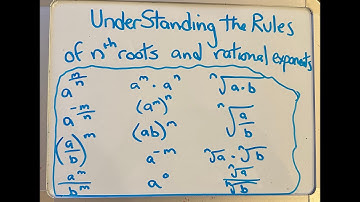 UnderStanding the Rules
of nᵗʰ roots and rational exponents
a^(m/n) a^m · a^n ⁿ√(a·b)
a^(-m/n) (a^m)^n ⁿ√(a/b)
(a/b)^m (ab)^n ⁿ√a · ⁿ√b
a^m/b^m a^-m ⁿ√a/ⁿ√b
a^0